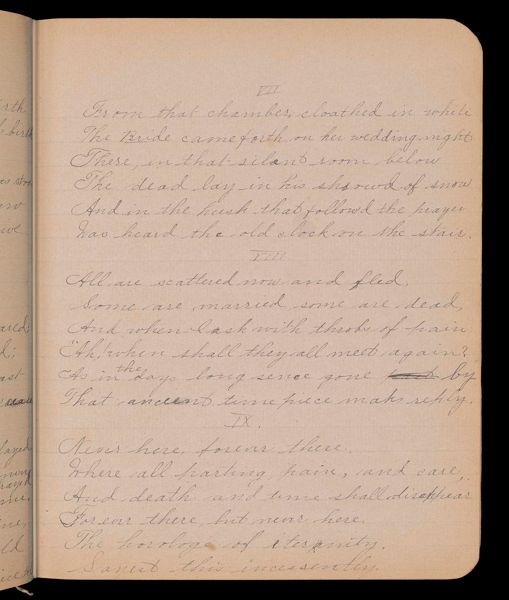 VII
From that chamber, cloathed in white
The Bride came forth on her wedding night
There, in that silant room below
The dead lay in his shrowd of snow
And in the hush that followd the prayer
Was heard the old clock on the stair.
VIII
All are scattered now and fled,
Some are married some are dead,
And when I ask with throbs of pain
"Ah! when shall they all meet again?
As in the days long sence gone by
That ancient timepiece maks reply.
IX.
Never here, forevr there.
Where all parting pain, and care,
And death and time shall disappear
Forevr there, but nevr here.
The horologe of eternity.
this incessently.